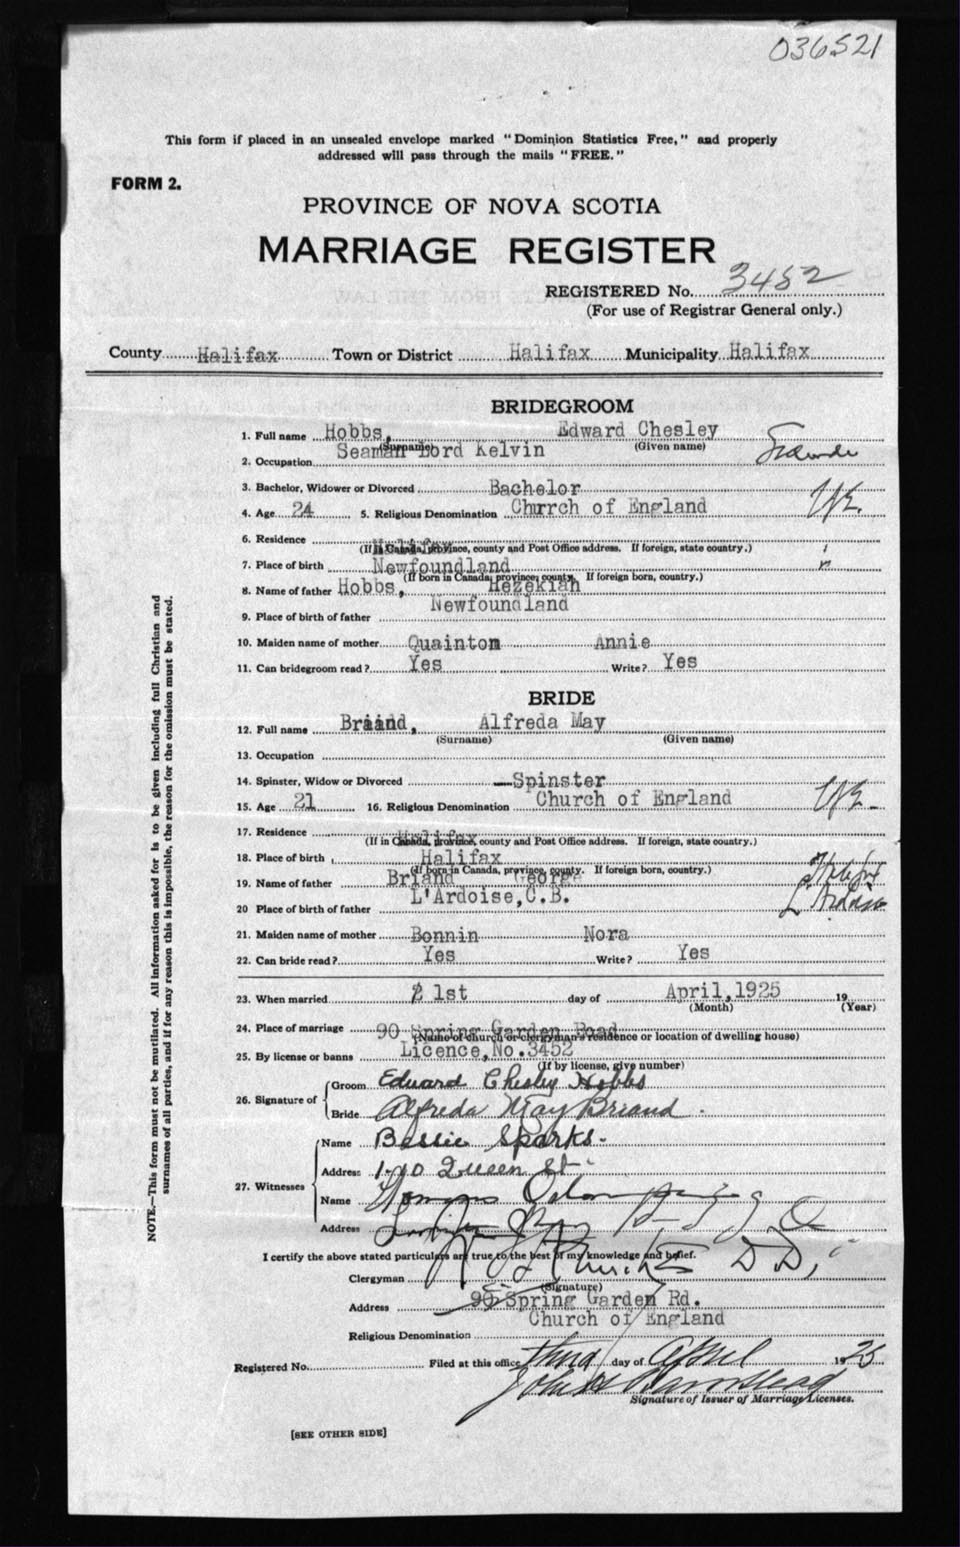 036521
This form if placed in an unsealed envelope marked "Dominion Statistics Free," and properly
addressed will pass through the mails "FREE."
FORM 2.
PROVINCE OF NOVA SCOTIA
MARRIAGE REGISTER
REGISTERED No. 3452
(For use of Registrar General only.)
County Halifax Town or District Halifax Municipality Halifax
BRIDEGROOM
1. Full name Hobbs, Edward Chesley
(Surname) (Given name)
2. Occupation Seaman Lord Kelvin
3. Bachelor, Widower or Divorced Bachelor
4. Age 24 5. Religious Denomination Chrrch of England
6. Residence Halifax
(If in Canada, province, county and Post Office address. If foreign, state country.)
7. Place of birth Newfoundland
(If born in Canada, province, county. If foreign born, country.)
8. Name of father Hobbs, Hezekiah
9. Place of birth of father Newfoundland
10. Maiden name of mother Quainton Annie
11. Can bridegroom read? Yes Write? Yes
BRIDE
12. Full name Briand, Alfreda May
(Surname) (Given name)
13. Occupation
14. Spinster, Widow or Divorced Spinster
15. Age 21 16. Religious Denomination Church of England
17. Residence Halifax
(If in Canada, province, county and Post Office address. If foreign, state country.)
18. Place of birth Halifax
(If born in Canada, province, county. If foreign born, country.)
19. Name of father Briand George
20 Place of birth of father L'Ardoise,C.B.
21. Maiden name of mother Bonnin Nora
22. Can bride read? Yes Write? Yes
23. When married 21st day of April,1925 19
(Month) (Year)
24. Place of marriage 90 Spring Garden Road
(Name of church or clergyman's residence or location of dwelling house)
25. By license or banns Licence,No.3452
(If by license, give number)
26. Signature of
Groom Edward Chesley Hobbs
Bride Alfreda May Briand.
27. Witnesses
Name Bessie Sparks
Address Queen St
Name
Address
I certify the above stated particulars are true to the best of my knowledge and belief.
Clergyman D.D.
(Signature)
Address 90 Spring Garden Rd.
Religious Denomination Church of England
Registered No. Filed at this office third day of April 1925
Signature of Issuer of Marriage Licenses.
[SEE OTHER SIDE]
NOTE.—This form must not be mutilated. All information asked for is to be given including full Christian and
surnames of all parties, and if for any reason this is impossible, the reason for the omission must be stated.